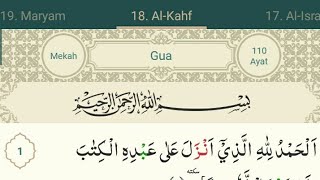 19. Maryam 18. Al-Kahf 17. Al-Isra
Mekah Gua 110 Ayat
بِسْمِ اللهِ الرَّحْمٰنِ الرَّحِيْمِ
1 اَلْحَمْدُ لِلّٰهِ الَّذِيْٓ اَنْزَلَ عَلٰى عَبْدِهِ الْكِتٰبَ